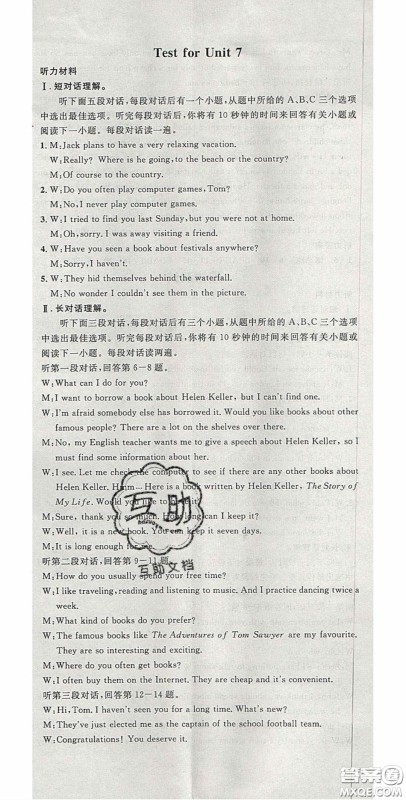 Test for Unit 7
听力材料
Ⅰ.短对话理解。
听下面五段对话,每段对话后有一个小题,从题中所给的A、B、C三个选项
中选出最佳选项。听完每段对话后,你将有10秒钟的时间来回答有关小题或
阅读下一小题。每段对话读一遍。
1. M:Jack plans to have a very relaxing vacation.
W:Really? Where is he going,to the beach or the country?
M:Of course to the country.
2. W:Do you often play computer games,Tom?
M:No,I never play computer games.
3. W:I tried to find you last Sunday,but you were not at home.
M:Oh,sorry. I was away visiting a friend.
4. W:Have you seen a book about festivals anywhere?
M:Sorry,I haven't.
5. W:They hid themselves behind the waterfall.
M:No wonder I couldn't see them in the picture.
Ⅱ.长对话理解。
听下面三段对话,每段对话后有几个小题,从题中所给的A、B、C三个选项
中选出最佳选项。听完每段对话后,你将有10秒钟的时间来回答有关小题或
阅读下一小题。每段对话读两遍。
听第一段对话,回答第6-8题。
W:What can I do for you?
M:I want to borrow a book about Helen Keller,but I can't find one.
W:I'm afraid somebody else has borrowed it. Would you like a book about other
famous people? There are a lot on the shelves over there.
M:No,my English teacher wants me to give a speech about Helen Keller,so I must
find some information about her.
W:I see. Let me check the computer to see if there are any other books about
Helen Keller. Hmm-Here is a book written by Helen Keller,The Story of
My Life. Would you like to borrow it?
M:Sure,thank you. How long can I keep it?
W:Well,it is a new book. You can keep it two weeks.
M:It is long enough for me.
听第二段对话,回答第9-11题。
M:How do you usually spend your free time?
W:I like traveling,reading and listening to music. And I practice dancing twice a
week.
M:What kind of books do you prefer?
W:The famous books like The Adventures of Tom Sawyer are my favourite.
They are so interesting and exciting.
M:Where do you often get books?
W:I often buy them on the Internet. Sometimes I borrow some from my friends.
听第三段对话,回答第12-14题。
W:Hi,Tom. I haven't seen you for a long time. What's new?
M:They've just elected me as the captain of the school football team.
W:Congratulations!
互助
互助文档
MXQE.COM